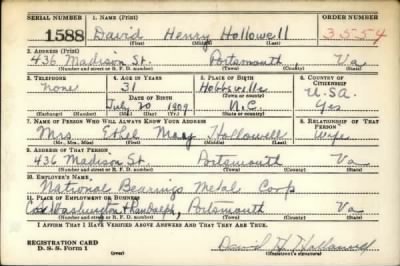 SERIAL NUMBER 1. NAME (Print) ORDER NUMBER
1588 David Henry Hollowell 3554
(First) (Middle) (Last)
2. ADDRESS (Print)
436 Madison St. Portsmouth, Va
(Number and street or R. F. D. number) (Town) (County) (State)
3. TELEPHONE 4. AGE IN YEARS 5. PLACE OF BIRTH 6. COUNTRY OF CITIZENSHIP
None 31 Hobbsville U.S.A.
DATE OF BIRTH
July 20 1909 N.C. Yes
(Exchange) (Number) (Mo.) (Day) (Yr.) (State or country)
7. NAME OF PERSON WHO WILL ALWAYS KNOW YOUR ADDRESS 8. RELATIONSHIP OF THAT PERSON
Mrs Ethel Mary Hollowell Wife
(Mr., Mrs., Miss) (First) (Middle) (Last)
9. ADDRESS OF THAT PERSON
436 Madison St. Portsmouth Va
(Number and street or R. F. D. number) (Town) (County) (State)
10. EMPLOYER'S NAME
National Bearings Metal Corp
11. PLACE OF EMPLOYMENT OR BUSINESS
Cor Washington & Randolph, Portsmouth Va
(Number and street or R. F. D. number) (Town) (County) (State)
I AFFIRM THAT I HAVE VERIFIED ABOVE ANSWERS AND THAT THEY ARE TRUE.
REGISTRATION CARD
D. S. S. Form 1
David H Hollowell
(Registrant's signature)